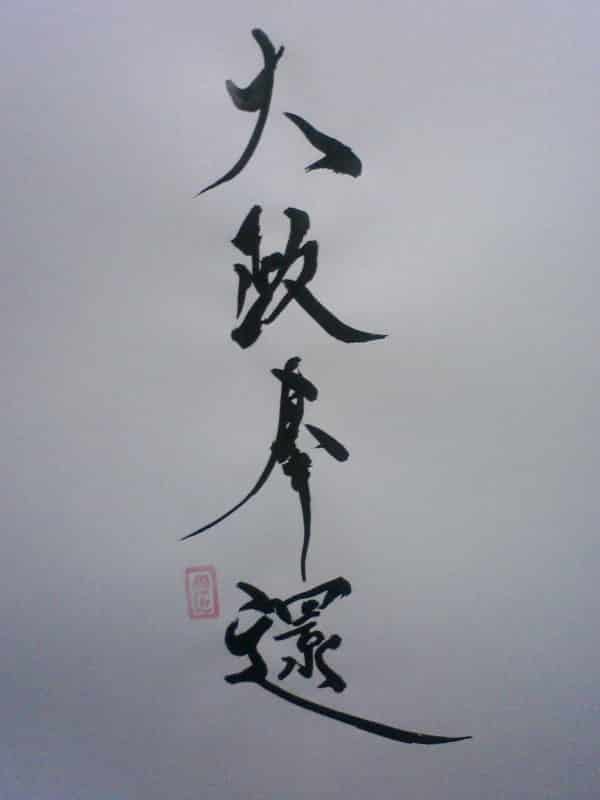 大政奉還